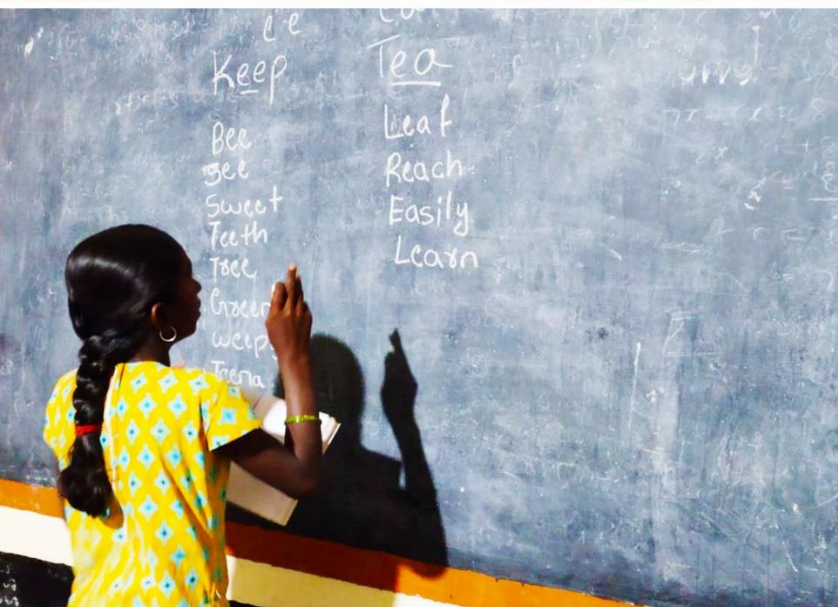 ee
Keep
Bee
See
Sweet
Teeth
Tree
Green
weep
Teena
Tea
Leaf
Reach
Easily
Learn